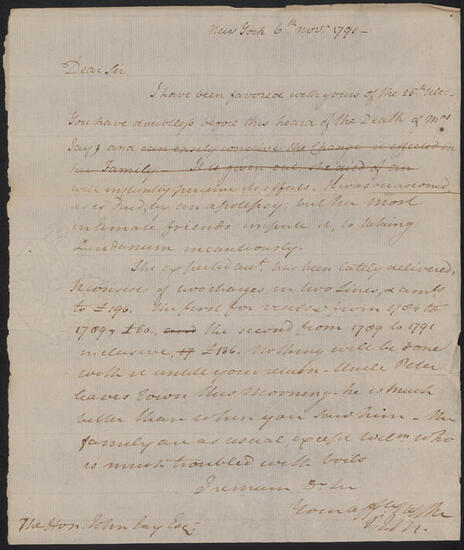 New York 6th novr 1791 –
Dear Sir,
I have been favored with yours of the 25th Ult–
You have doubtless before this heard of the Death of Mrs
Jay, and can easily conceive the Change it effected in
her Family. It is given out she died of an
will instantly perceive its effects. It was occasioned,
as is said, by an apoplepsy; but her most
intimate friends impute it, to taking
Laudanum incautiously.
The expected acct. has been lately delivered,
it consists of two charges in two Lines, & amts
to £196. The first for visits & from 1784 to
1789, £60. and the second from 1789 to 1791
inclusive, £136. Nothing will be done
with it untill your return – Uncle Peter
leaves Town this Morning. he is much
better than when you saw him – The
family are as usual except Wilm who
is much troubled with boils
I remain Dr Sir
Your
The Hon. John Jay Esqr